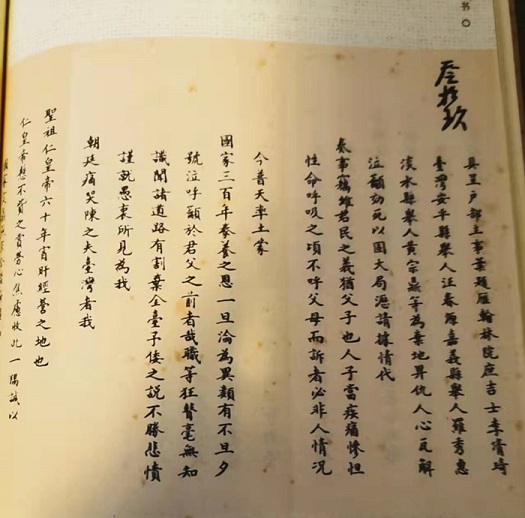 书
叁拾玖
具呈户部主事葉題雁翰林院庶吉士李清琦
臺灣安平縣舉人汪春源嘉義縣舉人羅秀惠
淡水縣舉人黃宗鼎等為棄地畀仇人心瓦解
泣籲効死以固大局懇請據情代
奏事竊維君民之義猶父子也人子當疾痛慘怛
性命呼吸之頃不呼父母而訴者必非人情況
今普天率土蒙
國家三百年豢養之恩一旦淪為異類有不旦夕
號泣呼籲於君父之前者哉職等狂瞽毫無知
識聞諸道路有割棄全臺予倭之說不勝悲憤
謹就愚衷所見為我
朝廷痛哭陳之夫臺灣者我
聖祖仁皇帝六十年宵旰經營之地也
仁皇帝懇不費之實勞心焦慮收此一隅誠以